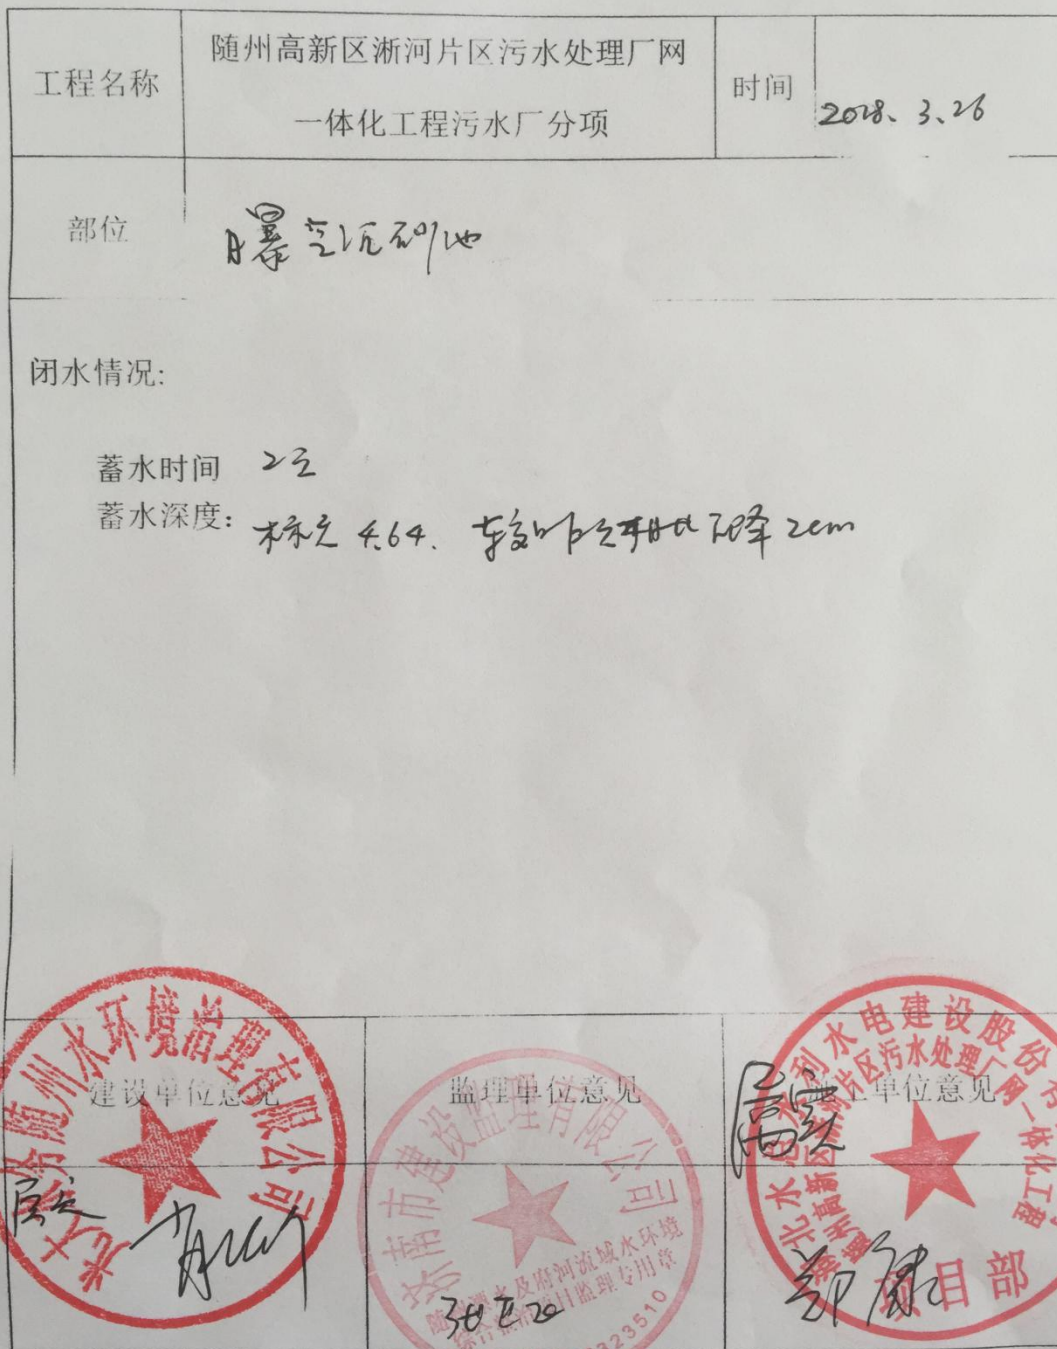 工程名称
随州高新区淅河片区污水处理厂网
一体化工程污水厂分项
时间
2028.3.26
部位
曝气沉砂池
闭水情况:
蓄水时间 2天
蓄水深度: 标高 4.64. 较昨天 下降 2cm
建设单位意见
监理单位意见
施工单位意见
光大水务随州水环境治理有限公司
济南市建设监理有限公司
随州 水及府河流域水环境
项目监理专用章
23510
北水 利水电建设股份有
随州高新区淅河片区污水处理厂网一体化工程
项目部
属实
郑康